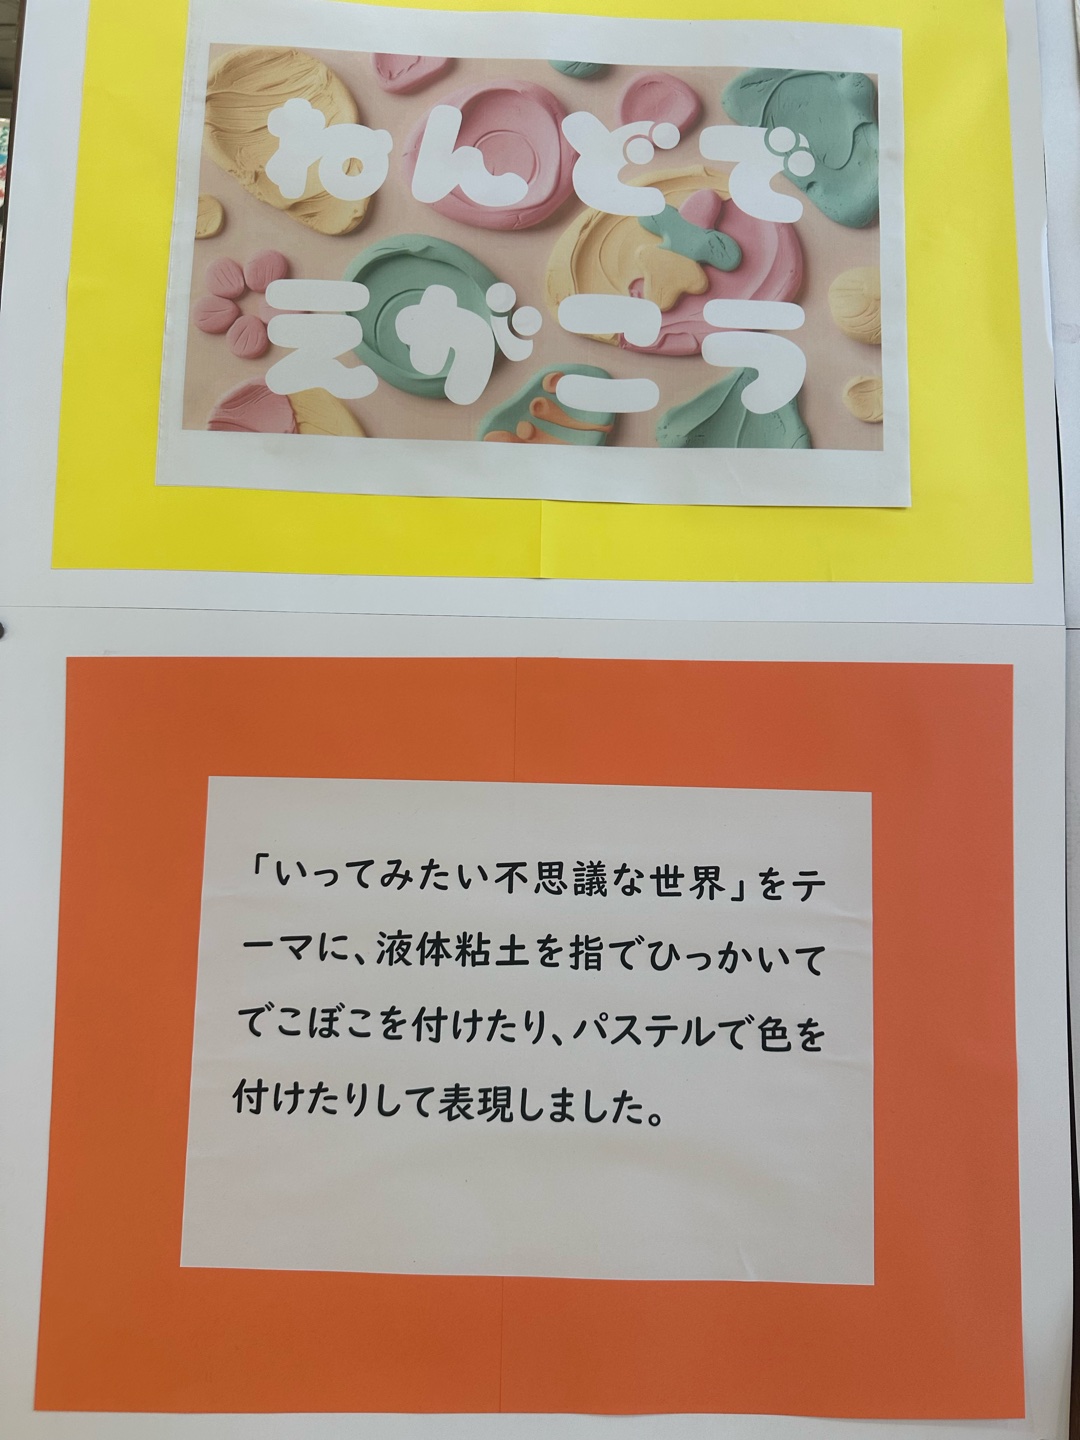 ねんどで
えがこう
「いってみたい不思議な世界」をテ
ーマに、液体粘土を指でひっかいて
でこぼこを付けたり、パステルで色を
付けたりして表現しました。